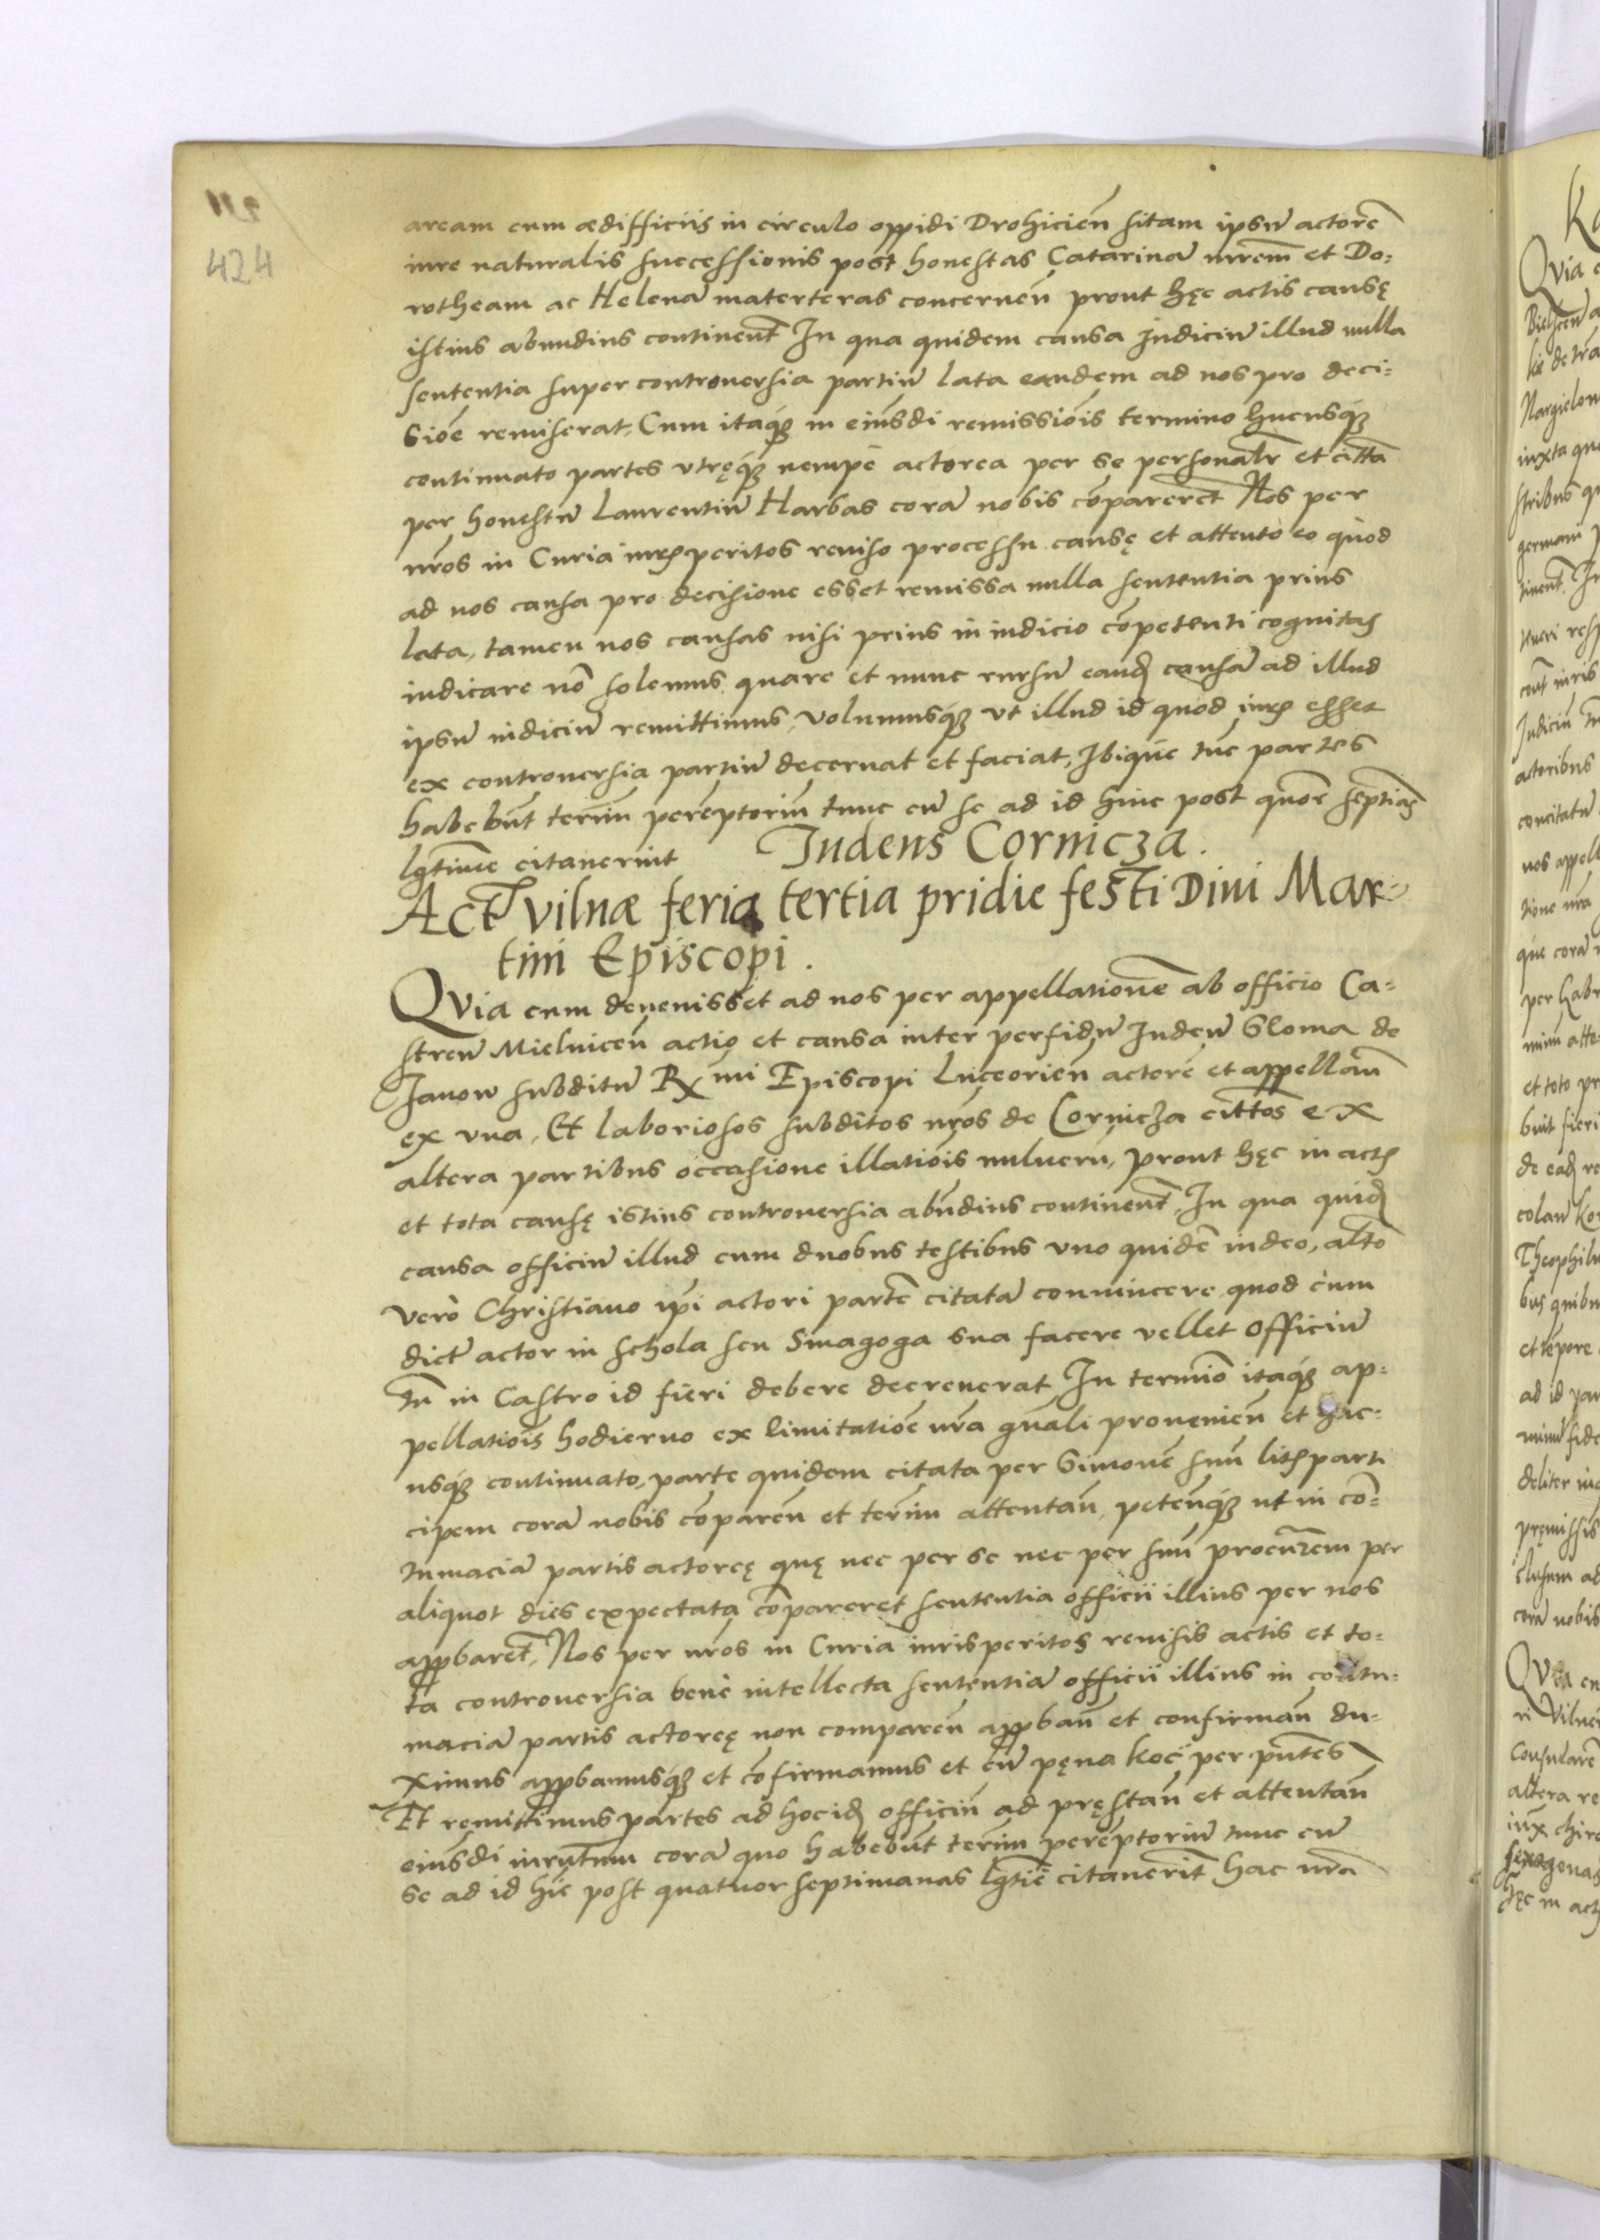 424
aream cum ædifficiis in circulo oppidi Drohicien̄ sitam ipsū actorē
iure naturalis successionis post honestas Catarinā mrēm et Do:
rotheam ac Helenā materteras concernen̄ prout hęc actis causę
istius abundius continent̄ In qua quidem causa Iudiciū illud nulla
sententia super controuersia partiū lata eandem ad nos pro deci:
sioē remiserat, Cum itaq́ꝫ in eiusdī remissiōis termino hucusq́ꝫ
continuato partes vtręq́ꝫ nempe actorea per se personalr̄ et citta
per honestū Laurentiū Harbas corā nobis cōparerēt Nos per
nr̄os in Curia iurꝭperitos reuiso processu causę et attento eo quod
ad nos causa pro decisione esset remissa nulla sententia prius
lata, tamen nos causas nisi prius in iudicio cōpetenti cognitas
iudicare nō solemus, quare et nunc rursū eand̄ causā ad illud
ipsū iudiciū remittimus, Volumusq́ꝫ vt illud id quod iurꝭ esset
ex controuersia partiū decernat et faciat, Ibique tūc partes
habebūt termīn perēptoriū tunc cū se ad id hinc post quōr septīas
lgtīme citauerint Iudeus Cornicza.
Act̄ Vilnæ feria tertia pridie festi Diui Mar-
tini Episcopi.
Qvia cum deuenisset ad nos per appellationē ab officio Ca:
strēn Mielnicen̄ actio et causa inter perfidū Iudeū Sloma de
Ianow subditū Rx mi Episcopi Luceorien̄ actorē et appellan̄
ex vna, Et laboriosos subditos nr̄os de Cornicza cittos ex
altera partibus occasione illatiōis vulnerū, prout hęc in actꝭ
et tota causę istius controuersia abūdius continent̄, In qua quid̄
causa officiū illud cum duobus testibus vno quidē iudeo, altō
vero Christiano ip̄i actori partē citatā conuincere, quod cum
dictꝰ actor in schola seu Sinagoga sua facere vellet Officiū
tn̄ in Castro id fieri debere decreuerat In termīo itaq́ꝫ ap:
pellatiōis hodierno ex limitatiōe nr̄a gn̄ali prouenien̄ et hac:
usq́ꝫ continuato, parte quidem citata per Simonē suū litꝭ parti
cipem corā nobis cōparen̄ et termīn attentan̄, petenq́ꝫ ut in cō:
tumaciā partis actoreę quę nec per se nec per suū procur̄em per
aliquot dies expectata cōpareret sententia officii illius per nos
approbaret̄, Nos per nr̄os in Curia iurisperitos reuisis actis et to:
ta controuersia bene intellecta sententiā officii illius in contu:
maciā partis actoreę non comparen̄ approban̄ et confirman̄ du:
ximus approbamusq́ꝫ et cōfirmamus et cū pęna koć per pn̄tes
Et remittimus partes ad hoc id̄ officiū ad pręstan̄ et attentan̄
eiusdī iurūtum corā quo habebūt termīn perēptoriū tunc cū
se ad id hīc post quatuor septimanas lgtīē citauerīt hac nr̄a